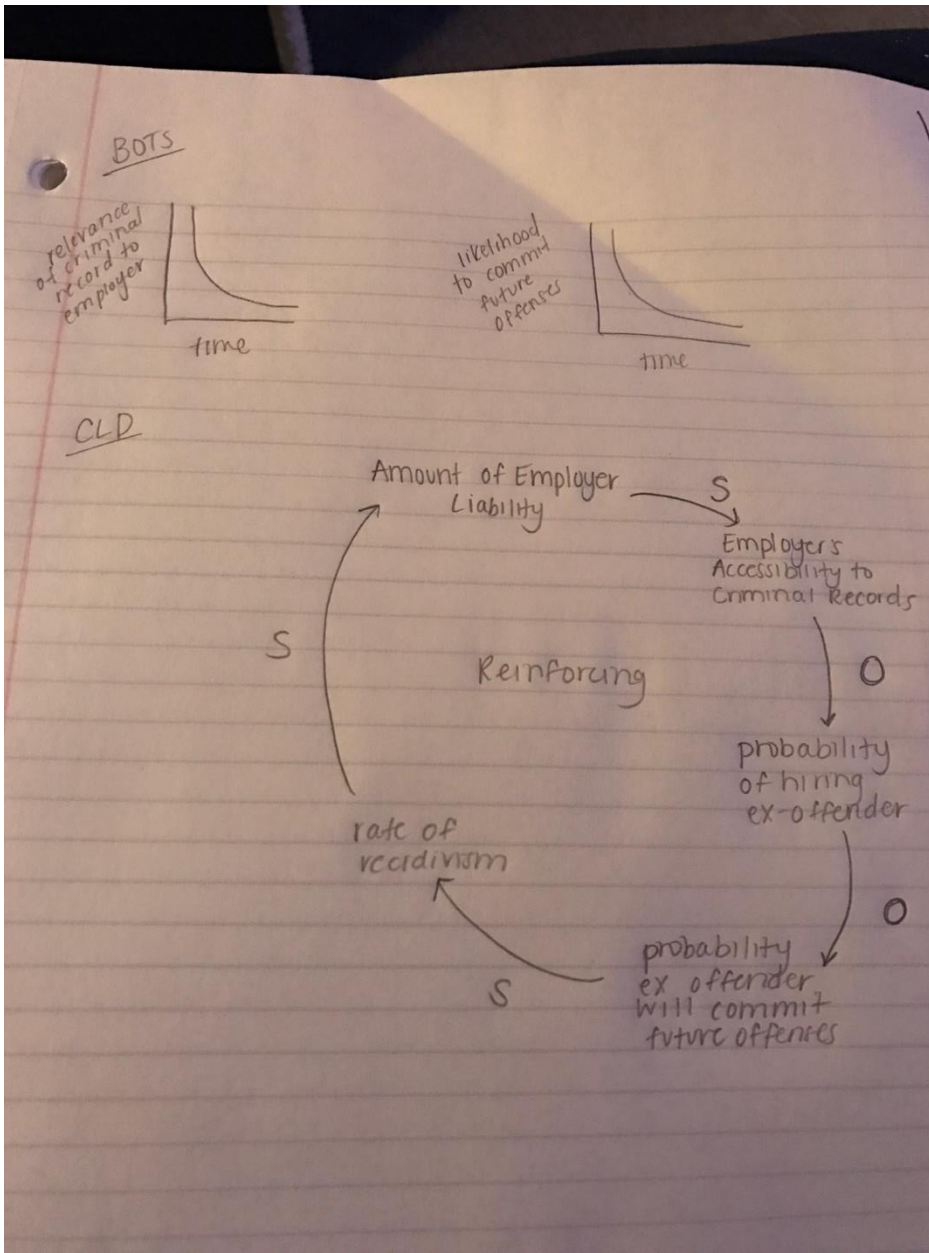 BOTS
relevance
of criminal
record to
employer
time
likelihood
to commit
future
offenses
time
CLD
Amount of Employer
Liability
S
Employers
Accessibility to
Criminal Records
O
probability
of hiring
ex-offender
O
probability
ex offender
will commit
future offenses
S
rate of
recidivism
S
Reinforcing